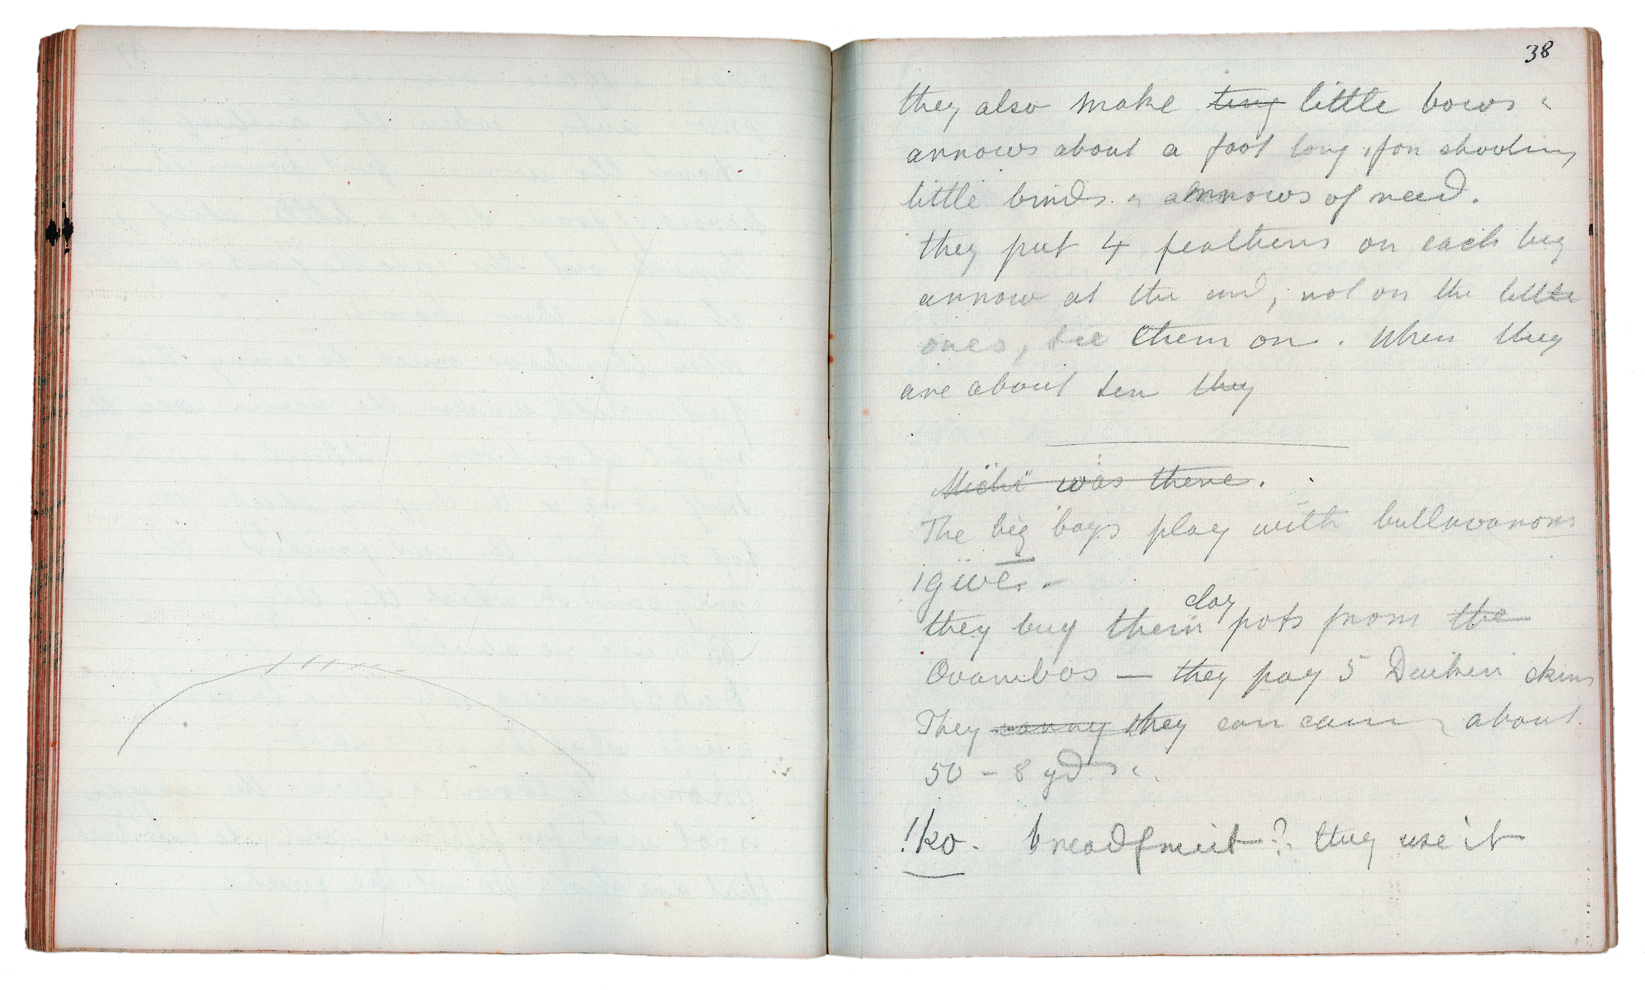 38
they also make tiny little bows &
arrows about a foot long, for shooting
little birds. & arrows of reed.
they put 4 feathers on each big
arrow at the end, not on the little
ones, tie them on. When they
are about ten they
was there.
The big boys play with
they buy their clay pots from the
Ovambos — they pay 5 Duiker skins
They carry they can carry about
50 - 8 yds
!ko. breadfruit? they use it